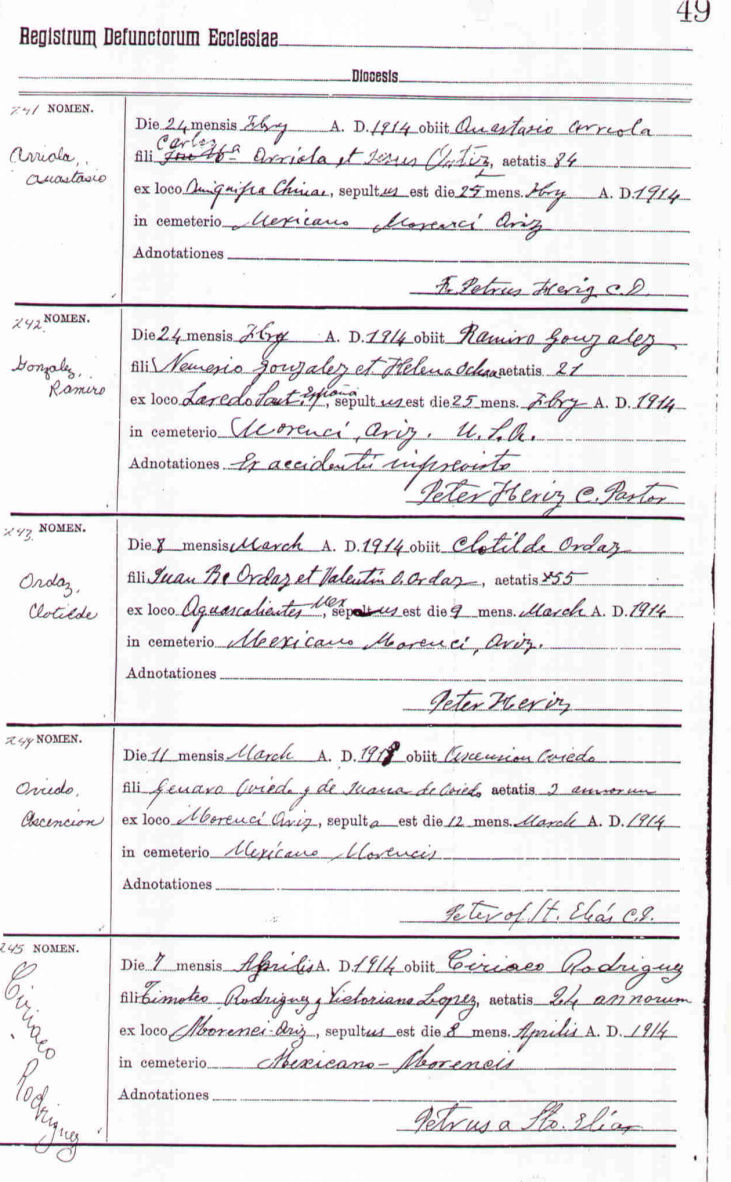 49
Registrum Defunctorum Ecclesiae
Diocesis
241 NOMEN.
Arriola, Anastasio
Die 24 mensis Fbry A. D. 1914 obiit Anastasio Arreola
Carlos
fili Arriola et Jesus Ortiz, aetatis 84
ex loco Chinae, sepultus est die 25 mens. Fbry A. D. 1914
in cemeterio Mexicano Morenci Ariz
Adnotationes
Fr. Petrus Heriz C. D.
242 NOMEN.
Gonzalez, Ramiro
Die 24 mensis Fbry A. D. 1914 obiit Ramiro Gonzalez
fili Nemesio Gonzalez et Helena Ochoa aetatis 21
ex loco Laredo España, sepultus est die 25 mens. Fbry A. D. 1914
in cemeterio Morenci, Ariz. U.S.A.
Adnotationes Ex accidentii imprevisto
Peter Heriz C. Pastor
243 NOMEN.
Ordaz, Clotilde
Die 8 mensis March A. D. 1914 obiit Clotilde Ordaz
fili Juan Ordaz et Valentin O. Ordaz, aetatis 55
ex loco Aguascalientes Mex, sepultus est die 9 mens. March A. D. 1914
in cemeterio Mexicano Morenci, Ariz.
Adnotationes
Peter Heriz
244 NOMEN.
Oviedo, Ascencion
Die 11 mensis March A. D. obiit Ascension Oviedo
fili Genaro Oviedo y de Juana de Oviedo aetatis 2 annorum
ex loco Morenci Ariz, sepulta est die 12 mens. March A. D. 1914
in cemeterio Mexicano Morencis
Adnotationes
Peter of St. Elías C.D.
245 NOMEN.
Ciriaco Rodriguez
Die 7 mensis Aprilis A. D. 1914 obiit Ciriaco Rodriguez
fili Timoteo Rodriguez y Victoriana Lopez, aetatis 24 annorum
ex loco Morenci-Ariz, sepultus est die 8 mens. Aprilis A. D. 1914
in cemeterio Mexicano - Morencis
Adnotationes
Petrus a Sto. Elías